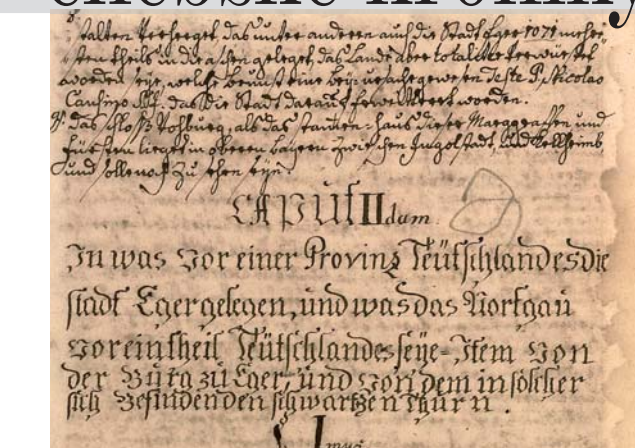 stalten verherget, das unter anderen auch die Stadt Eger 1071 mehrer
sten theils in die aschen geleget, das Landt aber totaliter verwüstet
worden seye, welche brunst eine bey ursache gewesen teste P. Nicolao
das die Stadt darauf worden.
das schloss Vohburg, als das stammen-haus dieser Marggraffen und
Fürsten lieget in oberen bayern zwischen Ingolstadt, und Kellheimb
und solle noch zu sehen seye.
CAPUT IIdum.
In was vor einer Provinz Teütschlandes die
stadt Eger gelegen, und was das Nortgau
vor ein theil Teütschlandes seye. Item von
der Burg zu Eger, und von dem in solcher
sich befindenden schwartzen Thurn.